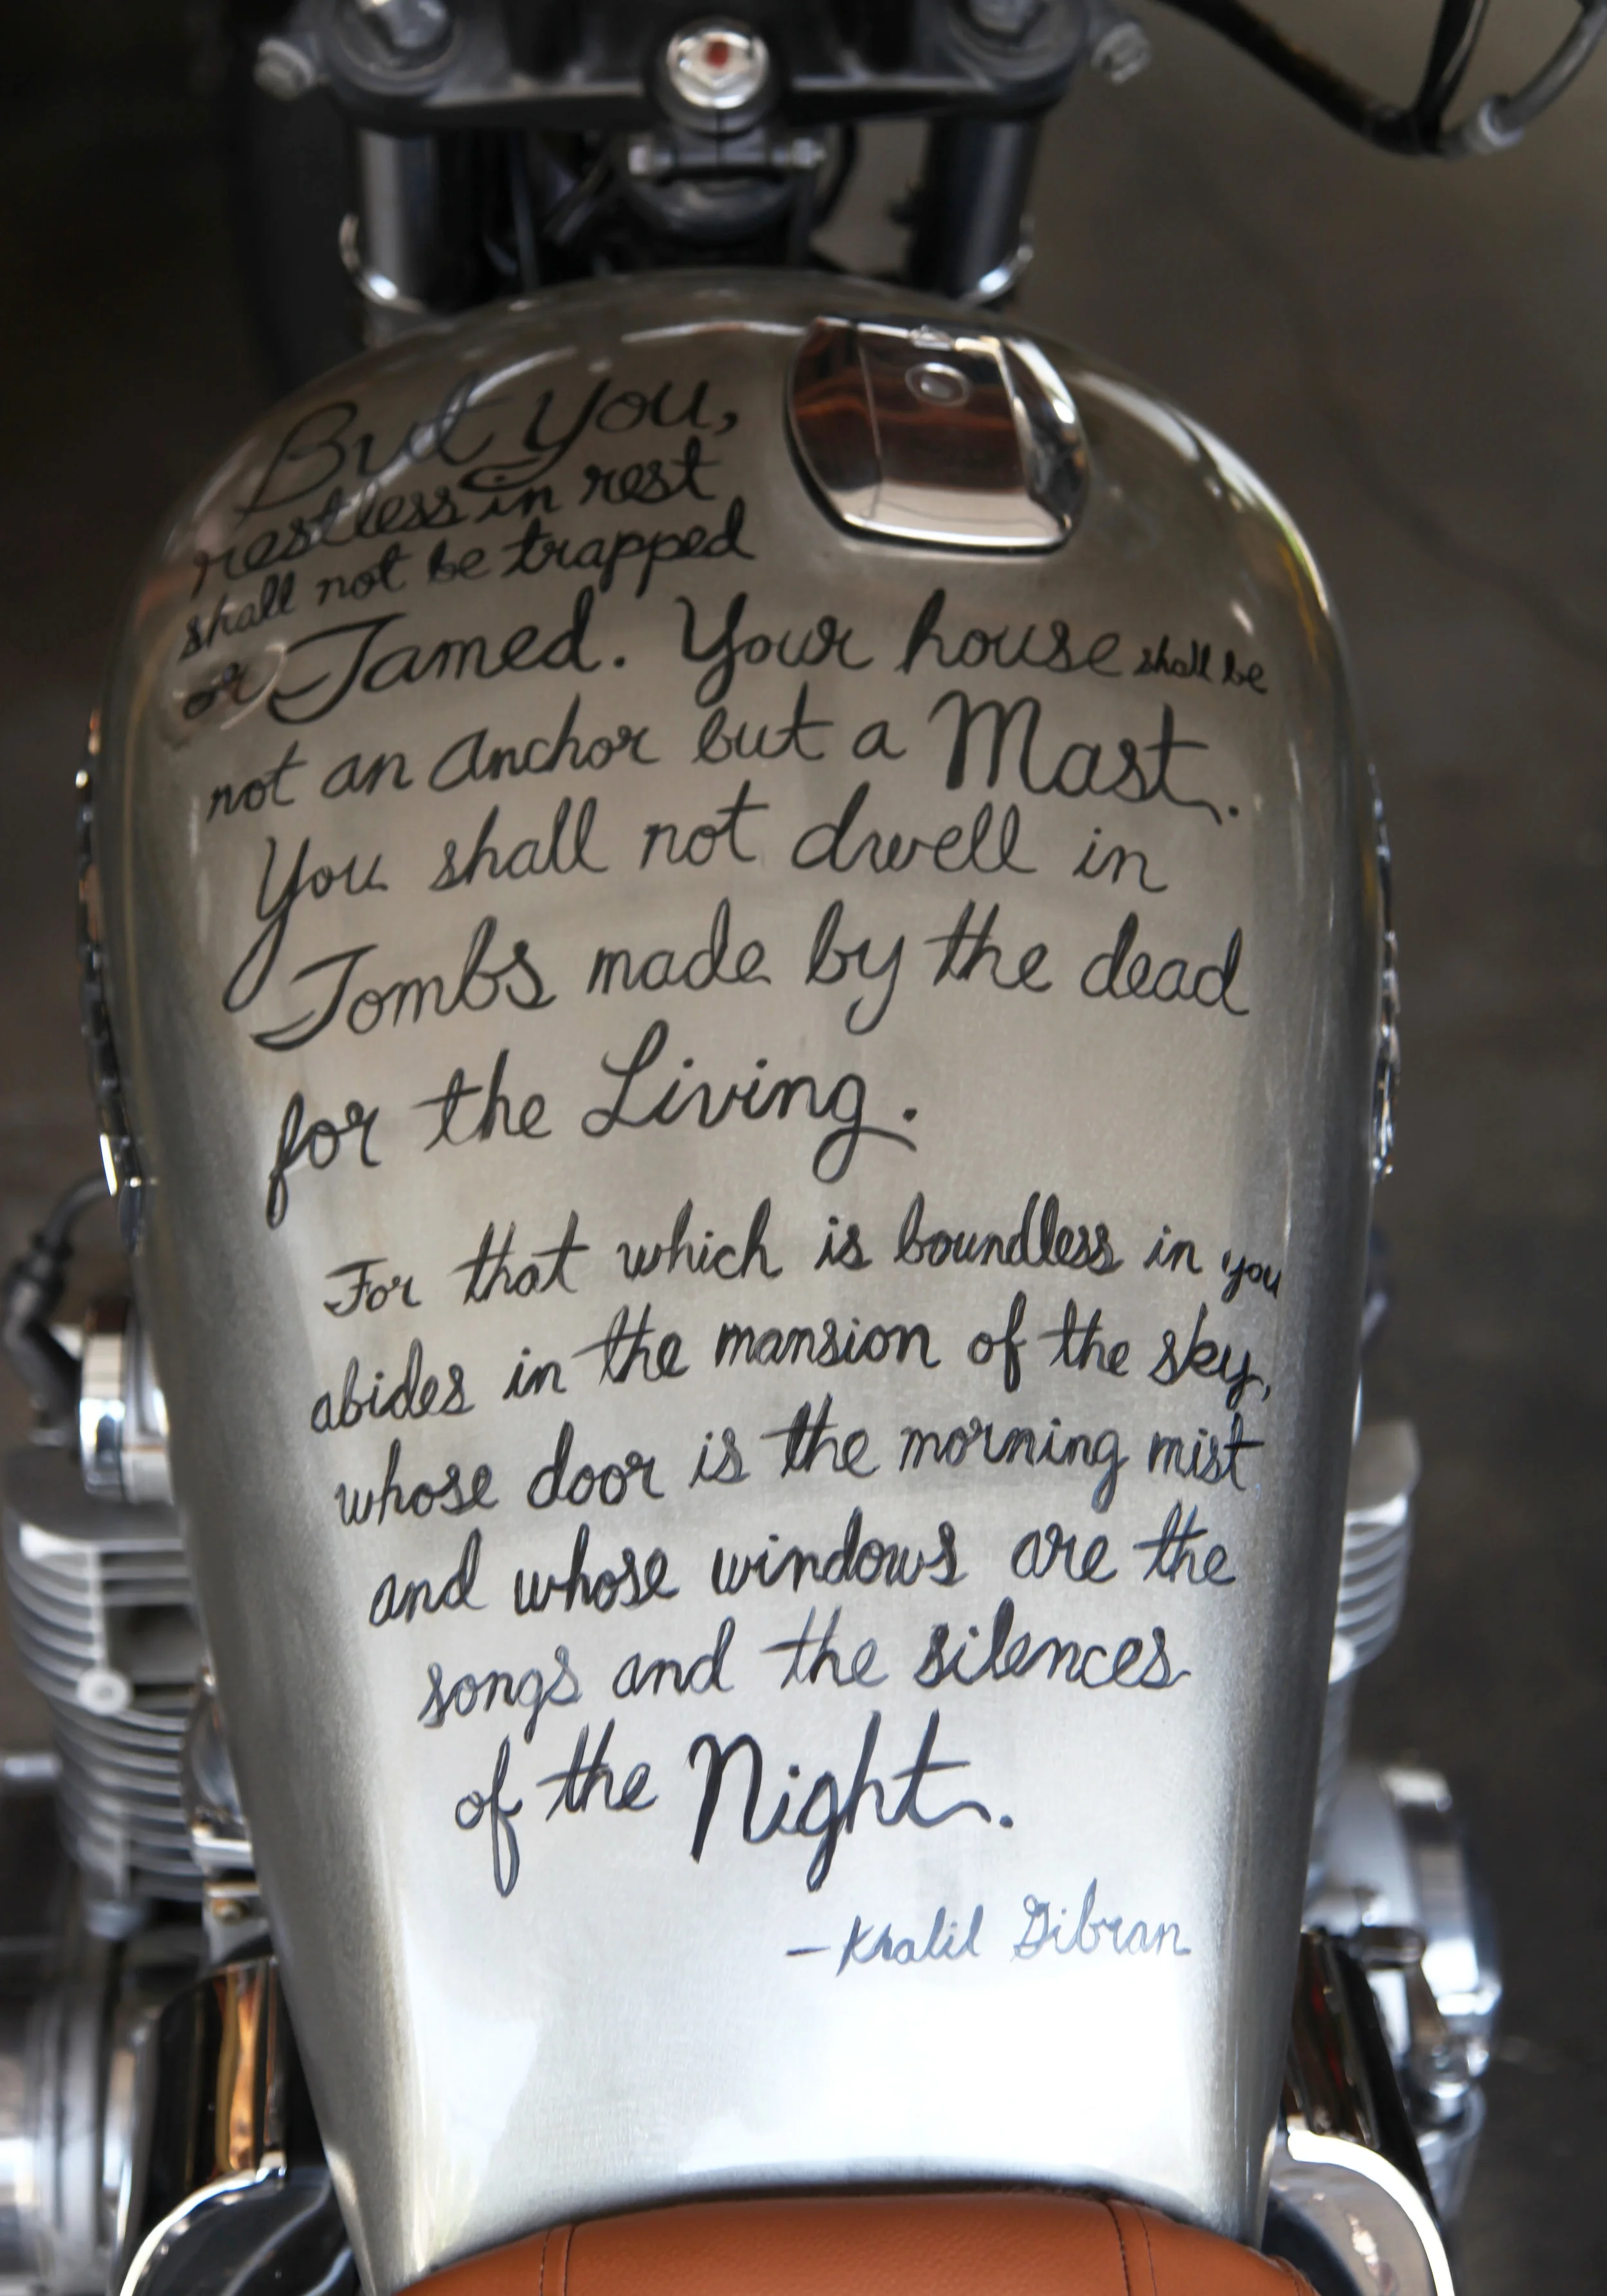 But You,
restless in rest
shall not be trapped
or Tamed. Your house shall be
not an anchor but a Mast.
You shall not dwell in
Tombs made by the dead
for the Living.
For that which is boundless in you
abides in the mansion of the sky,
whose door is the morning mist
and whose windows are the
songs and the silences
of the Night.
—Khalil Gibran